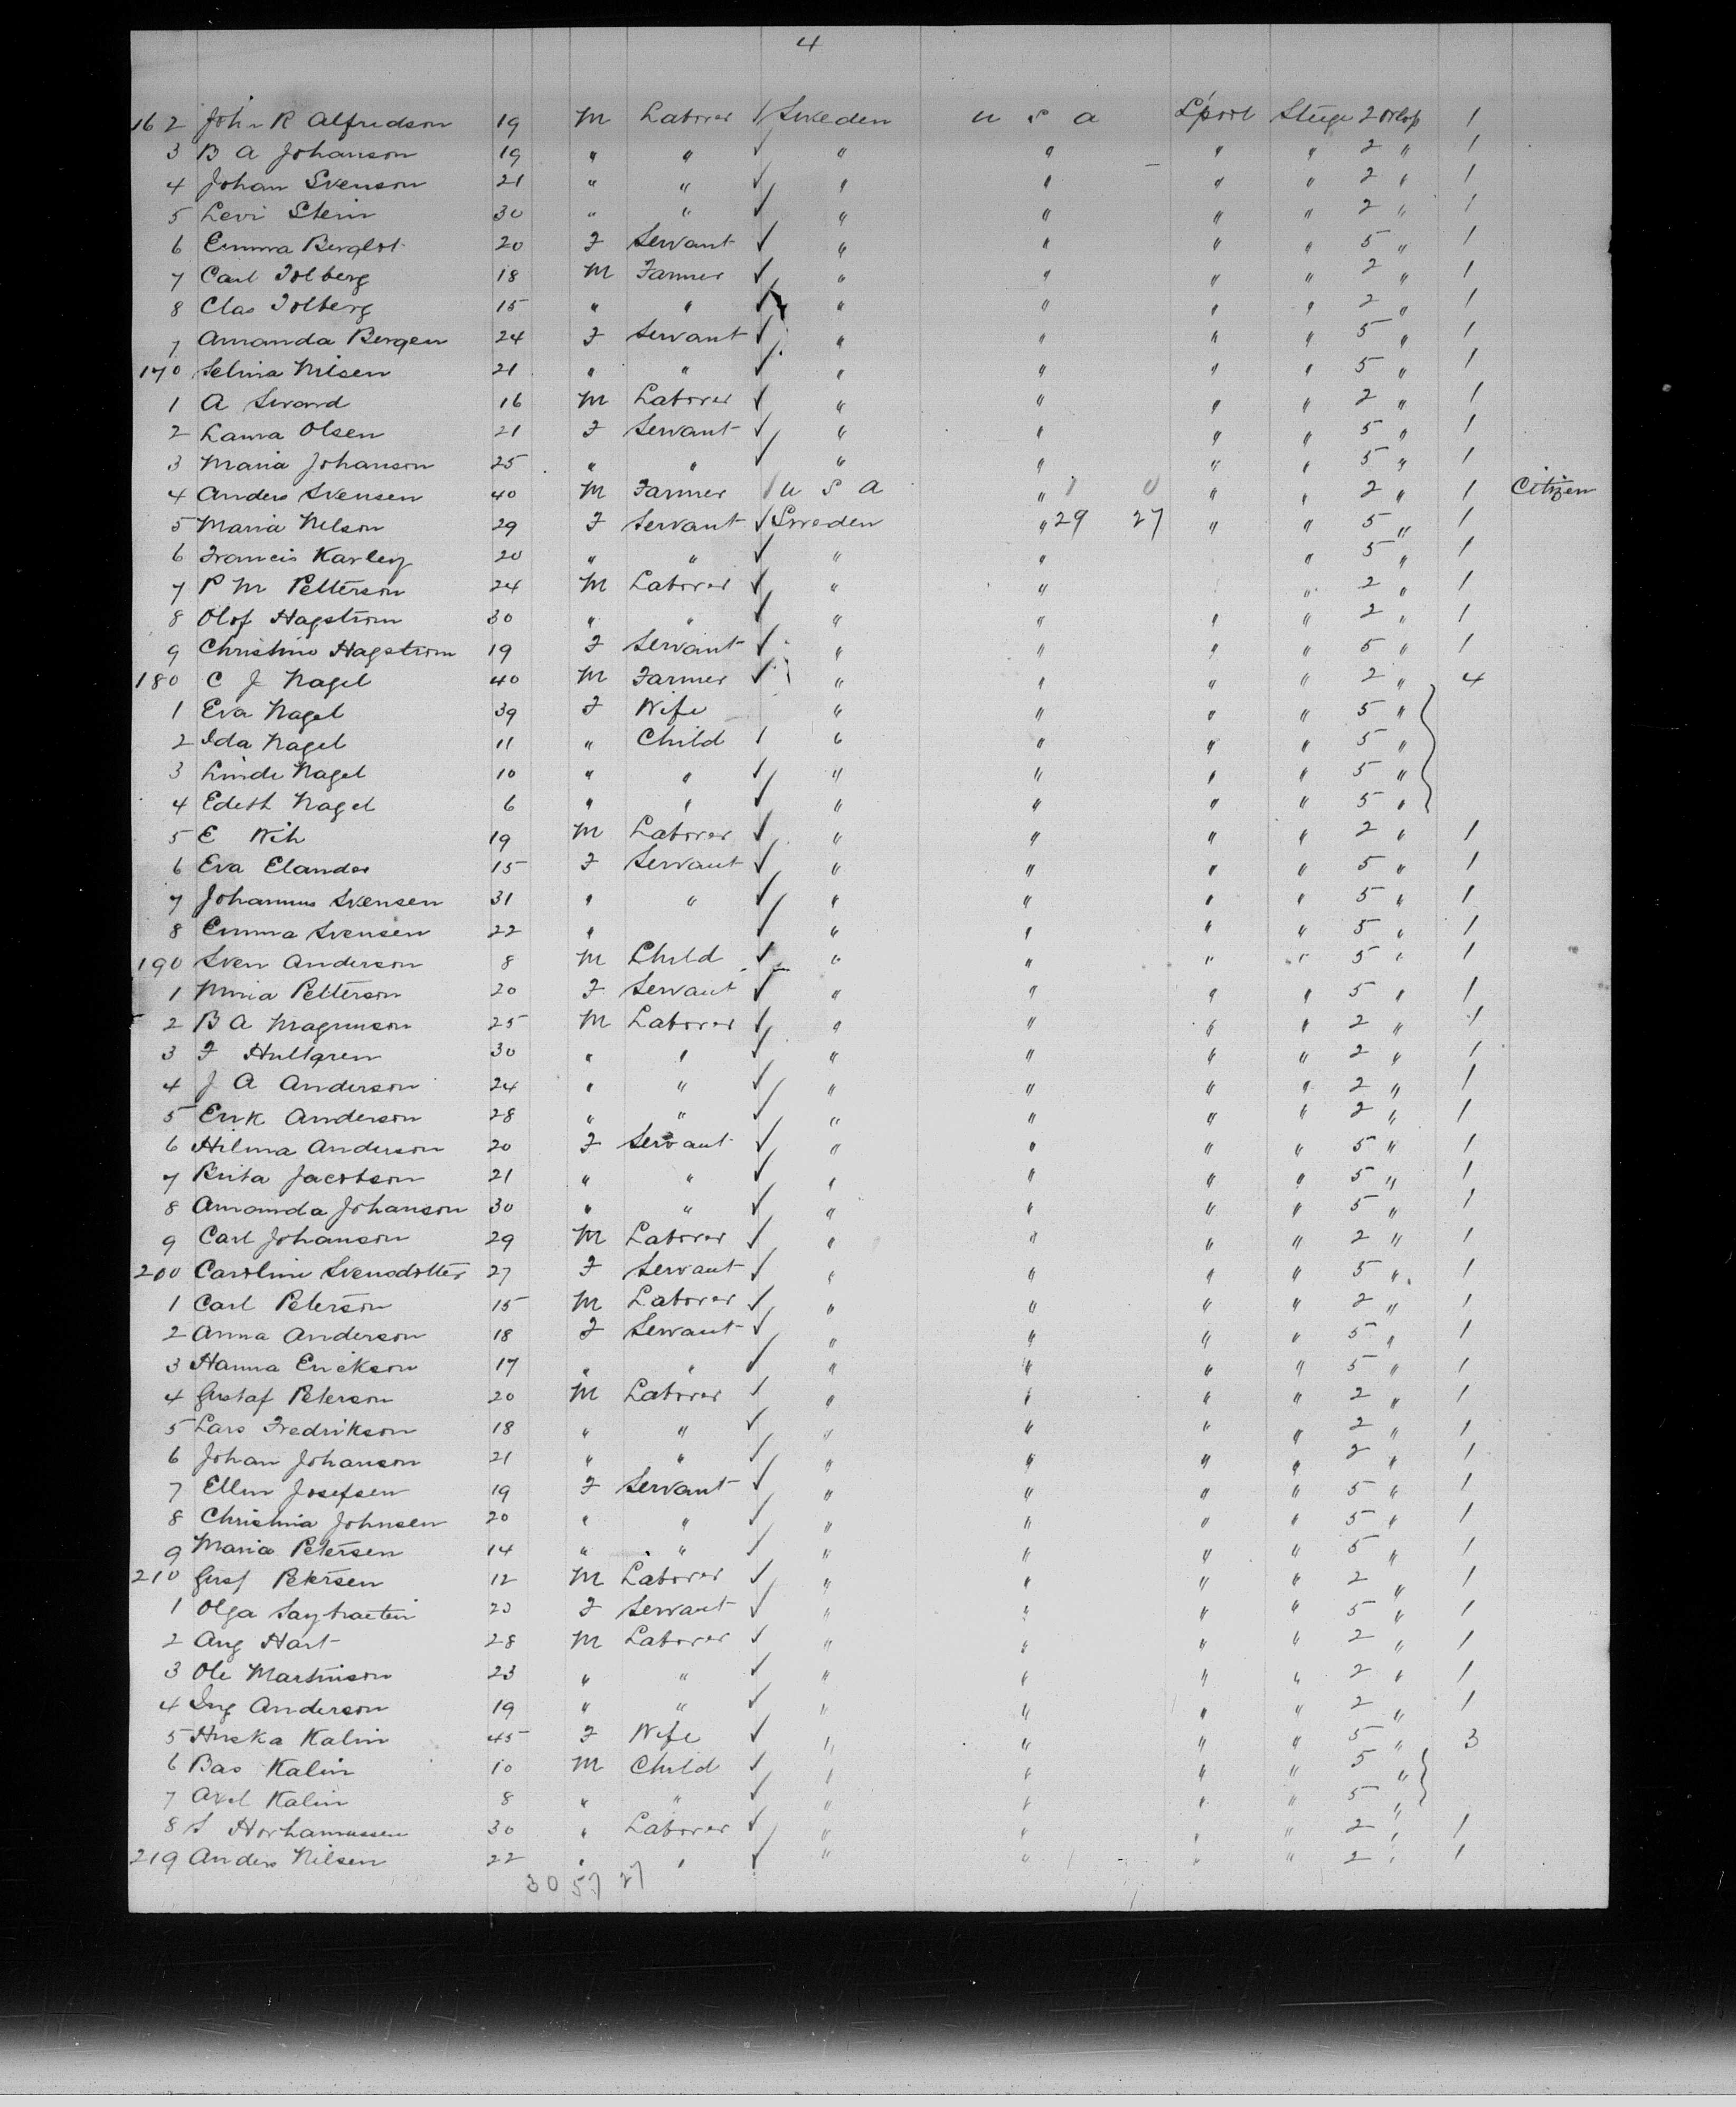 4
162 John R Alfredson 19 M Laborer ✓ Sweden U S A L'pool Stege 2 Orlop 1
3 B A Johanson 19 " " ✓ " " " " 2 " 1
4 Johan Svenson 21 " " ✓ " " " " 2 " 1
5 Levi Stein 30 " " ✓ " " " " 2 " 1
6 Emma Berglot 20 F Servant ✓ " " " " 5 " 1
7 Carl Tolberg 18 M Farmer ✓ " " " " 2 " 1
8 Clas Tolberg 15 " " ✓ " " " " 2 " 1
7 Amanda Bergen 24 F Servant ✓ " " " " 5 " 1
170 Selina Nilsen 21 " " ✓ " " " " 5 " 1
1 A Swand 16 M Laborer ✓ " " " " 2 " 1
2 Laura Olsen 21 F Servant ✓ " " " " 5 " 1
3 Maria Johanson 25 " " ✓ " " " " 5 " 1
4 Anders Svensen 40 M Farmer / U S A " 1 0 " " 2 " 1 Citizen
5 Maria Nelson 29 F Servant ✓ Sweden " 29 27 " " 5 " 1
6 Francis Karley 20 " " ✓ " " " 5 " 1
7 P M Petterson 24 M Laborer ✓ " " " 2 " 1
8 Olof Hagstrom 30 " " ✓ " " " " 2 " 1
9 Christine Hagstrom 19 F Servant ✓ " " " " 5 " 1
180 C J Nagel 40 M Farmer ✓ " " " " 2 " 4
1 Eva Nagel 39 F Wife " " " " 5 "
2 Ida Nagel 11 " Child / " " " " 5 "
3 Linde Nagel 10 " " ✓ " " " " 5 "
4 Edeth Nagel 6 " " ✓ " " " " 5 "
5 E Wih 19 M Laborer ✓ " " " " 2 " 1
6 Eva Elander 15 F Servant ✓ " " " " 5 " 1
7 Johannus Svensen 31 " " ✓ " " " " 5 " 1
8 Emma Svensen 22 " ✓ " " " " 5 " 1
190 Sven Anderson 8 M Child ✓ " " " " 5 " 1
1 Mina Petterson 20 F Servant ✓ " " " " 5 " 1
2 B A Magnuson 25 M Laborer ✓ " " " " 2 " 1
3 F Hultgren 30 " " ✓ " " " " 2 " 1
4 J A Anderson 24 " " ✓ " " " " 2 " 1
5 Erik Anderson 28 " " ✓ " " " " 2 " 1
6 Hilma Anderson 20 F Servant ✓ " " " " 5 " 1
7 Brita Jacobson 21 " " ✓ " " " " 5 " 1
8 Amanda Johanson 30 " " ✓ " " " " 5 " 1
9 Carl Johanson 29 M Laborer ✓ " " " " 2 " 1
200 Caroline Svensdotter 27 F Servant ✓ " " " " 5 " 1
1 Carl Peterson 15 M Laborer ✓ " " " " 2 " 1
2 Anna Anderson 18 F Servant ✓ " " " " 5 " 1
3 Hanna Erickson 17 " " ✓ " " " " 5 " 1
4 Gustaf Peterson 20 M Laborer ✓ " " " " 2 " 1
5 Lars Fredrikson 18 " " ✓ " " " " 2 " 1
6 Johan Johanson 21 " " ✓ " " " " 2 " 1
7 Ellen Josefsen 19 F Servant ✓ " " " " 5 " 1
8 Christina Johnsen 20 " " ✓ " " " " 5 " 1
9 Maria Petersen 14 " " ✓ " " " " 5 " 1
210 Gust Petersen 12 M Laborer ✓ " " " " 2 " 1
1 Olga 23 F Servant ✓ " " " " 5 " 1
2 Aug Hart 28 M Laborer ✓ " " " " 2 " 1
3 Ole Martinson 23 " " ✓ " " " " 2 " 1
4 Ing Anderson 19 " " ✓ " " " " 2 " 1
5 Huska Kalin 45 F Wife ✓ " " " " 5 " 3
6 Bas Kalin 10 M Child ✓ " " " " 5 "
7 Axel Kalin 8 " " ✓ " " " " 5 "
8 S 30 " Laborer ✓ " " " " 2 " 1
219 Anders Nilsen 22 " " ✓ " " " " 2 " 1
30 57 27